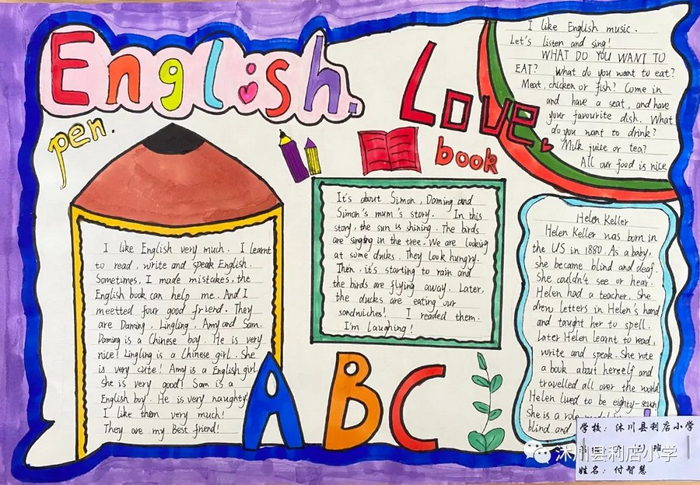 English.
Love.
pen.
book
I like English music.
Let's listen and sing!
WHAT DO YOU WANT TO
EAT? What do you want to eat?
Meat, chicken or fish? Come in
and have a seat, and have
your favourite dish. What
do you want to drink?
Milk juice or tea?
All our food is nice
I like English very much. I learnt
to read, write and speak English.
Sometimes, I made mistakes, the
English book can help me. And I
meetted four good friend. They
are Daming. Lingling. Amy and Sam.
Daming is a Chinese boy. He is very
nice! Lingling is a Chinese girl. She
is very cute! Amy is a English girl.
She is very good! Sam is a
English boy. He is very naughty.
I like them very much!
They are my Best friend!
It's about Simon, Daming and
Simon's mum's story. In this
story, the sun is shining. The birds
are singing in the tree. We are looking
at some duks. They look hungry.
Then, it's starting to rain and
the birds are flying away. Later,
the ducks are eating our
sandwiches! I readed them.
I'm laughing!
Helen Keller
Helen Keller was born in
the US in 1880. As a baby,
she became blind and deaf.
She couldn't see or hear.
Helen had a teacher. She
drew letters in Helen's hand
and taught her to spell.
Later Helen learnt to read,
write and speak. She rote
a book about herself and
travelled all over the world
Helen lived to be eighty-seven
She is a role
blind and
ABC
学校: 沐川县利店小学
姓名: 付智慧
沐川县利店小学